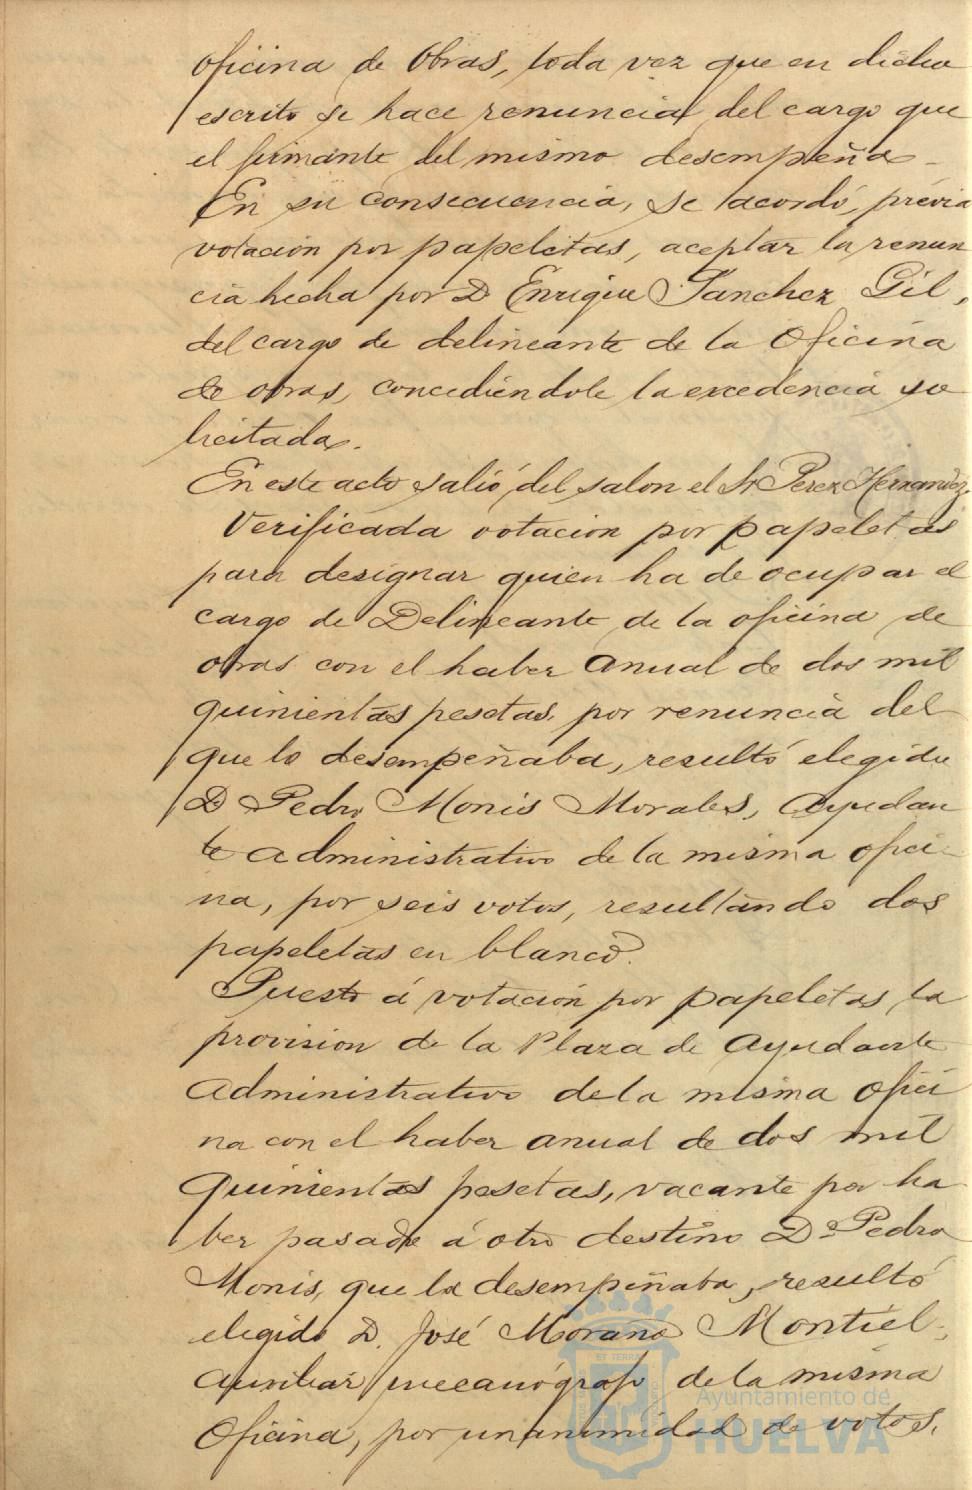 oficina de Obras, toda vez que en dicho
escrito se hace renuncia del cargo que
el firmante del mismo desempeña_
En su consecuencia, se acordó, prévia
votación por papeletas, aceptar la renun
cia hecha por D Enrique Sanchez Gil,
del cargo de delineante de la Oficina
de obras, concediéndole la excedencia so
licitada.
En este acto salió del salon el Sr Perez Hernandez
Verificada votacion por papeletas
para designar quien ha de ocupar el
cargo de Delineante de la oficina de
obras con el haber anual de dos mil
quinientas pesetas, por renuncia del
que lo desempeñaba, resultó elegido
D. Pedro Monis Morales, Ayudan
te administrativo de la misma ofici-
na, por seis votos, resultando dos
papeletas en blanco.
Puesto á votación por papeletas la
provision de la Plaza de Ayudante
Administrativo de la misma ofici
na con el haber anual de dos mil
quinientas pesetas, vacante por ha
ber pasado á otro destino Dº Pedro
Monis, que la desempeñaba, resultó
elegido D. José Morano Montiel,
Auxiliar mecanógrafo de la misma
Oficina, por unanimidad de votos.
ET TERRAE
Ayuntamiento de
HUELVA